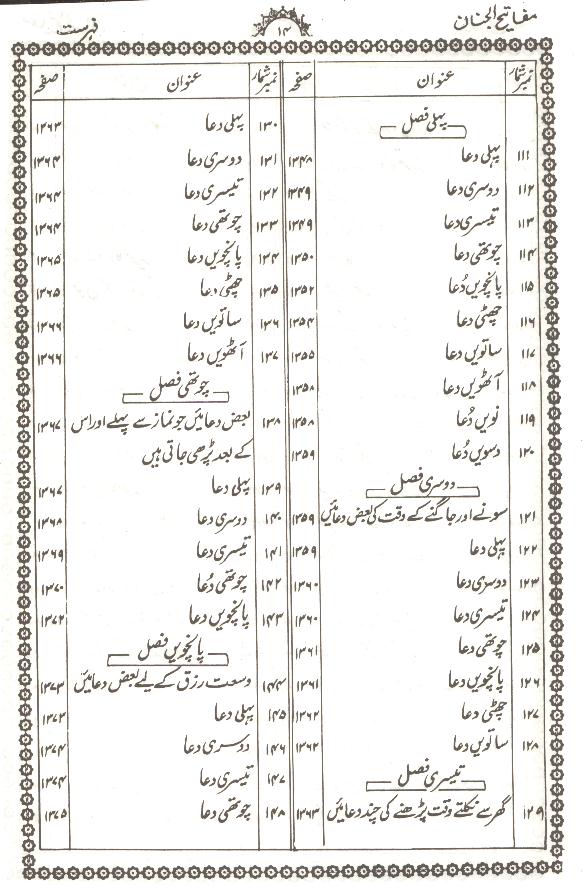 مفاتیح الجنان ۱۴ فہرست
نمبر شمار عنوان صفحہ
پہلی فصل
۱۱۱ پہلی دعا ۱۳۴۸
۱۱۲ دوسری دعا ۱۳۴۹
۱۱۳ تیسری دعا ۱۳۴۹
۱۱۴ چوتھی دعا ۱۳۵۰
۱۱۵ پانچویں دُعا ۱۳۵۲
۱۱۶ چھٹی دعا ۱۳۵۴
۱۱۷ ساتویں دعا ۱۳۵۵
۱۱۸ آٹھویں دعا ۱۳۵۸
۱۱۹ نویں دُعا ۱۳۵۸
۱۲۰ دسویں دُعا ۱۳۵۹
دوسری فصل
۱۲۱ سونے اور جاگنے کے وقت کی بعض دعائیں ۱۳۵۹
۱۲۲ پہلی دعا ۱۳۵۹
۱۲۳ دوسری دعا ۱۳۶۰
۱۲۴ تیسری دعا ۱۳۶۰
۱۲۵ چوتھی دعا ۱۳۶۱
۱۲۶ پانچویں دعا ۱۳۶۱
۱۲۷ چھٹی دعا ۱۳۶۲
۱۲۸ ساتویں دعا ۱۳۶۲
تیسری فصل
۱۲۹ گھر سے نکلتے وقت پڑھنے کی چند دعائیں ۱۳۶۳
نمبر شمار عنوان صفحہ
۱۳۰ پہلی دعا ۱۳۶۳
۱۳۱ دوسری دعا ۱۳۶۴
۱۳۲ تیسری دعا ۱۳۶۴
۱۳۳ چوتھی دعا ۱۳۶۴
۱۳۴ پانچویں دعا ۱۳۶۵
۱۳۵ چھٹی دعا ۱۳۶۵
۱۳۶ ساتویں دعا ۱۳۶۶
۱۳۷ آٹھویں دعا ۱۳۶۶
چوتھی فصل
۱۳۸ بعض دعائیں جو نماز سے پہلے اور اس ۱۳۶۷
کے بعد پڑھی جاتی ہیں
۱۳۹ پہلی دعا ۱۳۶۷
۱۴۰ دوسری دعا ۱۳۶۸
۱۴۱ تیسری دعا ۱۳۶۹
۱۴۲ چوتھی دُعا ۱۳۷۰
۱۴۳ پانچویں دعا ۱۳۷۲
پانچویں فصل
۱۴۴ وسعت رزق کے لیے بعض دعائیں ۱۳۷۳
۱۴۵ پہلی دعا ۱۳۷۳
۱۴۶ دوسری دعا ۱۳۷۴
۱۴۷ تیسری دعا ۱۳۷۴
۱۴۸ چوتھی دعا ۱۳۷۵